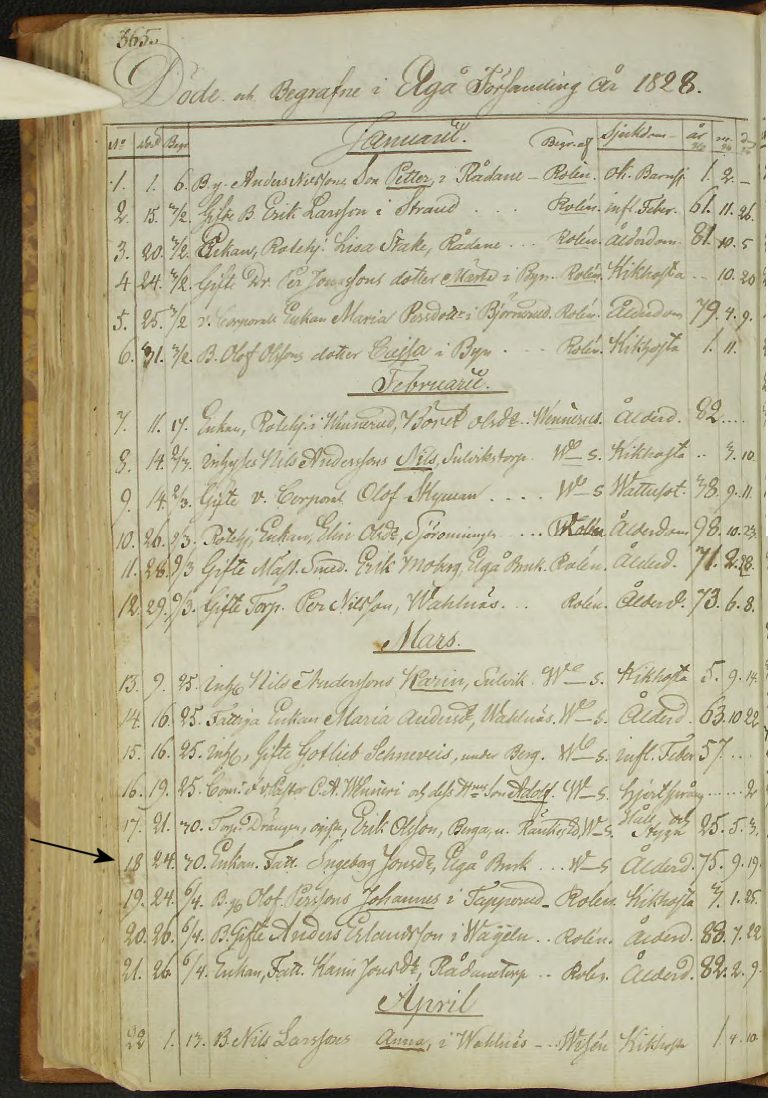 365.
Döde och Begrafne i Elgå Församling År 1828.
Januarii.
No Död Begr. Begr. af Sjukdom år
1. 1. 6. B.g. Anders Nilssons Son Petter, i Rådane - Rolén. ok. Barnsj 1. 2. -
2. 15. 3/2 Gifte B. Erik Larsson i Strand . . . Rolén. infl. Feber. 61. 11. 26.
3. 20. 3/2. Enkan, Rotehj. Lisa Stake, Rådane . . . Rolén. Ålderdom. 81. 10. 5
4 24. 3/2. Gifte Dr. Per Jonassons dotter Märta i Byn. Rolén Kikhosta .. 10. 20
5. 25. 3/2 v. Corporals Enkan Maria Persdotr i Björnerud. Rolén. Ålderdom 79. 4. 9.
6. 31. 3/2. B. Olof Olssons dotter Cajsa i Byn . . . Rolén. Kikhosta 1. 11.
Februarii.
7. 11. 17. Enkan, Rotehj. i Winnerud, Boret Olsdr. Winnerus. Ålderd. 82 ....
8. 14. 2/3. Nils Anderssons Nils, Sulvikstorp. W-s. Kikhosta .. 3. 10.
9. 14. 2/3. Gifte v. Corporal Olof Skyman . . . . W-s Wattusot. 38. 9. 11.
10. 26. 9/3. Rotehj. Enkan, Elin Olsdr, . . . Rolén Ålderdom 98. 10. 23.
11. 28. 9/3 Gifte Mäst. Smed. Erik Mohrg, Elgå Bruk. Rolén. Ålderd. 71. 2. 28.
12. 29. 9/3. Gifte Torp. Per Nilsson, Wahlnäs. . . Rolén. Ålderd. 73. 6. 8.
Mars.
13. 9. 25. Inhs Nils Anderssons Karin, Sulvik. W-s. Kikhosta 5. 9. 14.
14. 16 25. Fattiga Enkan Maria Andersdr, Wahlnäs. W-s. Ålderd. 63. 10 22
15. 16. 25. Inhs, Gifte Gotlieb Schneveis, under Berg. W-s. infl. Feber 57. ...
16. 19. 25. Com. o. v. Pastor C. A. Winneri och dess Hus Son Adolf. W-s. hjertsprång ...... 2
17. 21. 30. Torp. Drängen, ogifte, Erik Olsson, Berga, u. W-s. Håll och Stygn 25. 5. 3.
18 24. 30. Enkan. Fatt. Ingeborg Jonsdr, Elgå Bruk ... W-s Ålderd. 75. 9. 19.
19. 24. 6/4. B.g. Olof Perssons Johannes i Tapperud - Rolén. Kikhosta 7. 1. 25.
20. 26. 6/4. B. Gifte Anders Erlandsson i Wägeln . . Rolén. Ålderd. 88. 7. 22
21. 26 6/4. Enkan, Fatt. Karin Jonsdr, Rådanetorp .. Rolén. Ålderd. 82. 2. 9.
April
22 1. 13. B. Nils Larssons Anna, i Wahlnäs - .. Wisén Kikhosta 1 4. 10